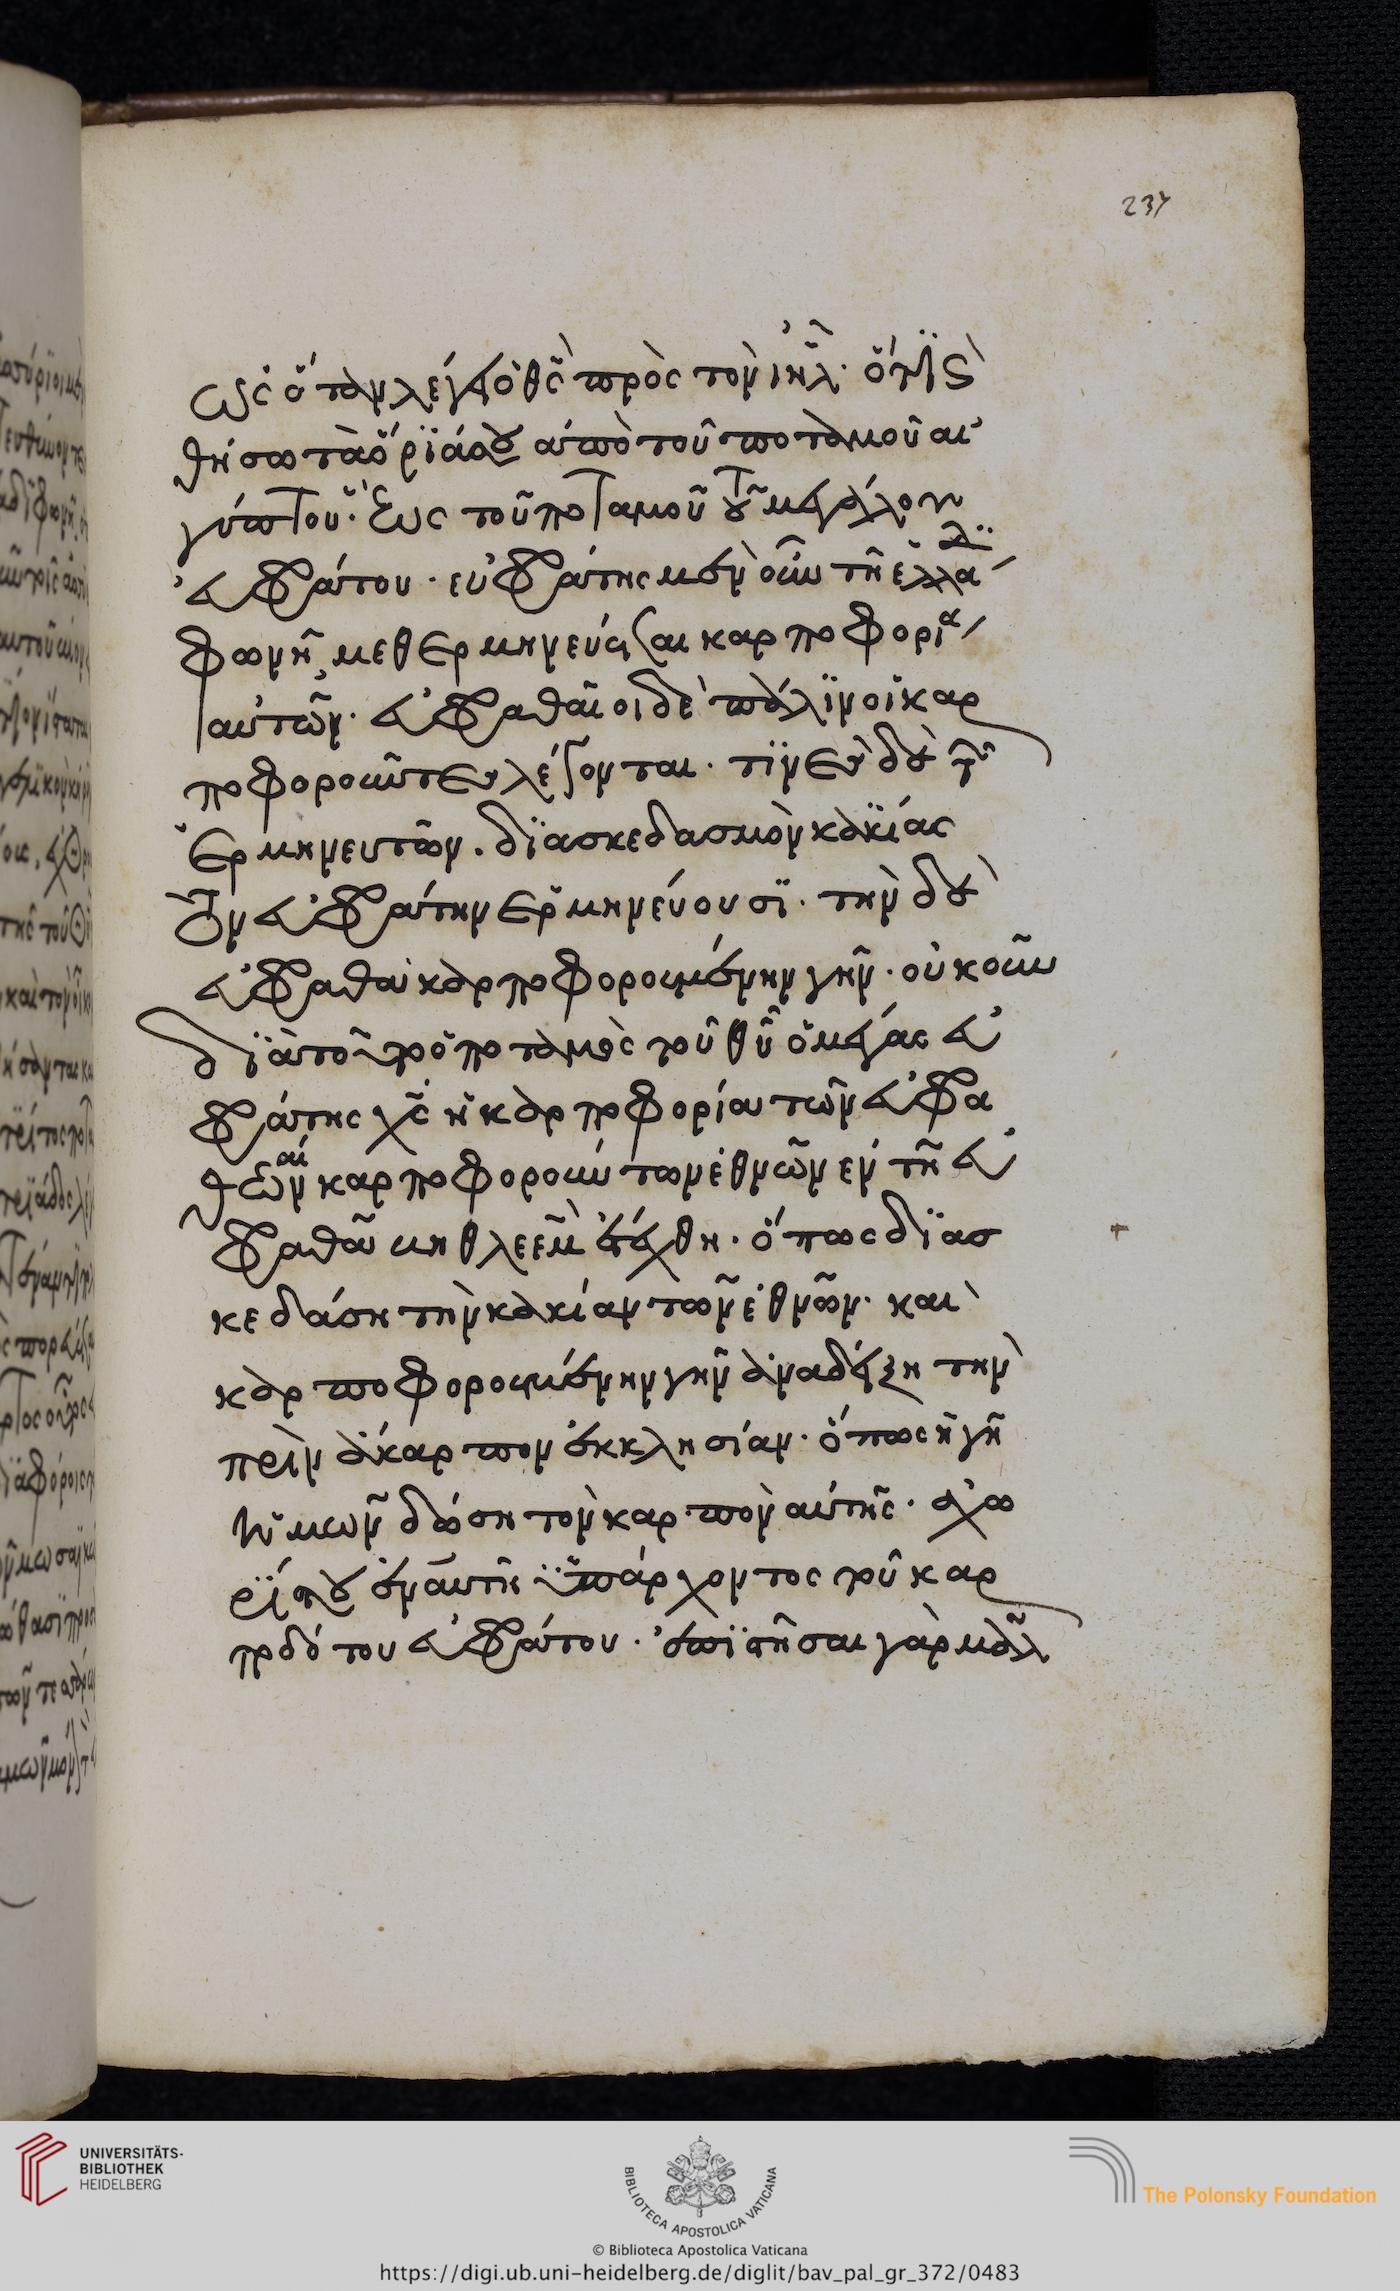 237
ὡς ὅταν λέγει ὁ θς πρὸς τὸν ιηλ· ὅτι
θήσω τὰ ὅριά σου ἀπὸ τοῦ ποταμοῦ αι
γύπτου· ἕως τοῦ ποταμοῦ τοῦ μεγάλου
εὐφράτου· εὐφράτης μὲν οὖν τῆ ἑλλα
φωνῆ, μεθερμηνεύεται καρποφορία
αὐτῶν· εὐφραθαῖοι δὲ πάλιν οἱ καρ
ποφοροῦντες λέγονται· τινὲς δὲ τῶν
ἑρμηνευτῶν. διασκεδασμὸν κακίας
τὸν εὐφράτην ἑρμηνεύουσι· τὴν δὲ
εὐφραθὰ καρποφορουμένην γῆν· οὐκοῦν
διὰ τοῦτο ὁ ποταμὸς τοῦ θυ ὁ μέγας εὐ
φράτης χς ἡ καρποφορία τῶν εὐφρα
θαίων καρποφορούντων ἐθνῶν ἐν τῆ εὐ
φραθᾶ βηθλεὲμ ἐτέχθη· ὅπως διασ
κεδάση τὴν κακίαν τῶν ἐθνῶν· καὶ
καρποφορουμένην γῆν ἀναδείξη τὴν
πρὶν ἄκαρπον ἐκκλησίαν· ὅπως ἡ γῆ
ἡμῶν δώση τὸν καρπὸν αὐτῆς· ἀχω
ρίστου ἐν αὐτῆ ὑπάρχοντος τοῦ καρ
ποδότου εὐφράτου· ἐπιστῆσαι γὰρ μᾶλ
UNIVERSITÄTS-
BIBLIOTHEK
HEIDELBERG
BIBLIOTECA APOSTOLICA VATICANA
The Polonsky Foundation
© Biblioteca Apostolica Vaticana
https://digi.ub.uni-heidelberg.de/diglit/bav_pal_gr_372/0483